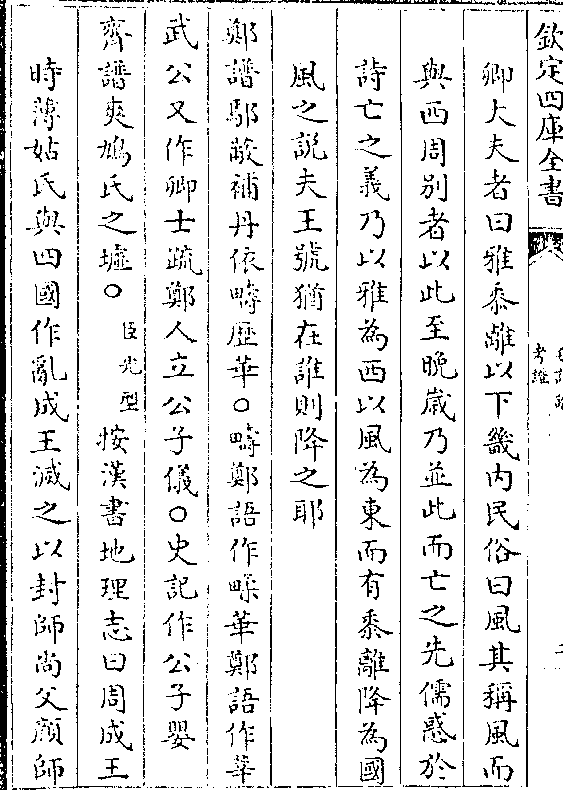 欽定四庫全書
考證
卿大夫者曰雅黍離以下畿内民俗曰風其稱風而
與西周别者以此至晚嵗乃並此而亡之先儒惑於
詩亡之義乃以雅為西以風為東而有黍離降為國
風之説夫王號猶在誰則降之耶
鄭譜鄢蔽補丹依疇歴華○疇鄭語作㽥華鄭語作莘
武公又作卿士疏鄭人立公子儀○史記作公子嬰
齊譜爽鳩氏之墟○臣光型按漢書地理志曰周成王
時薄姑氏與四國作亂成王滅之以封師尚父顔師